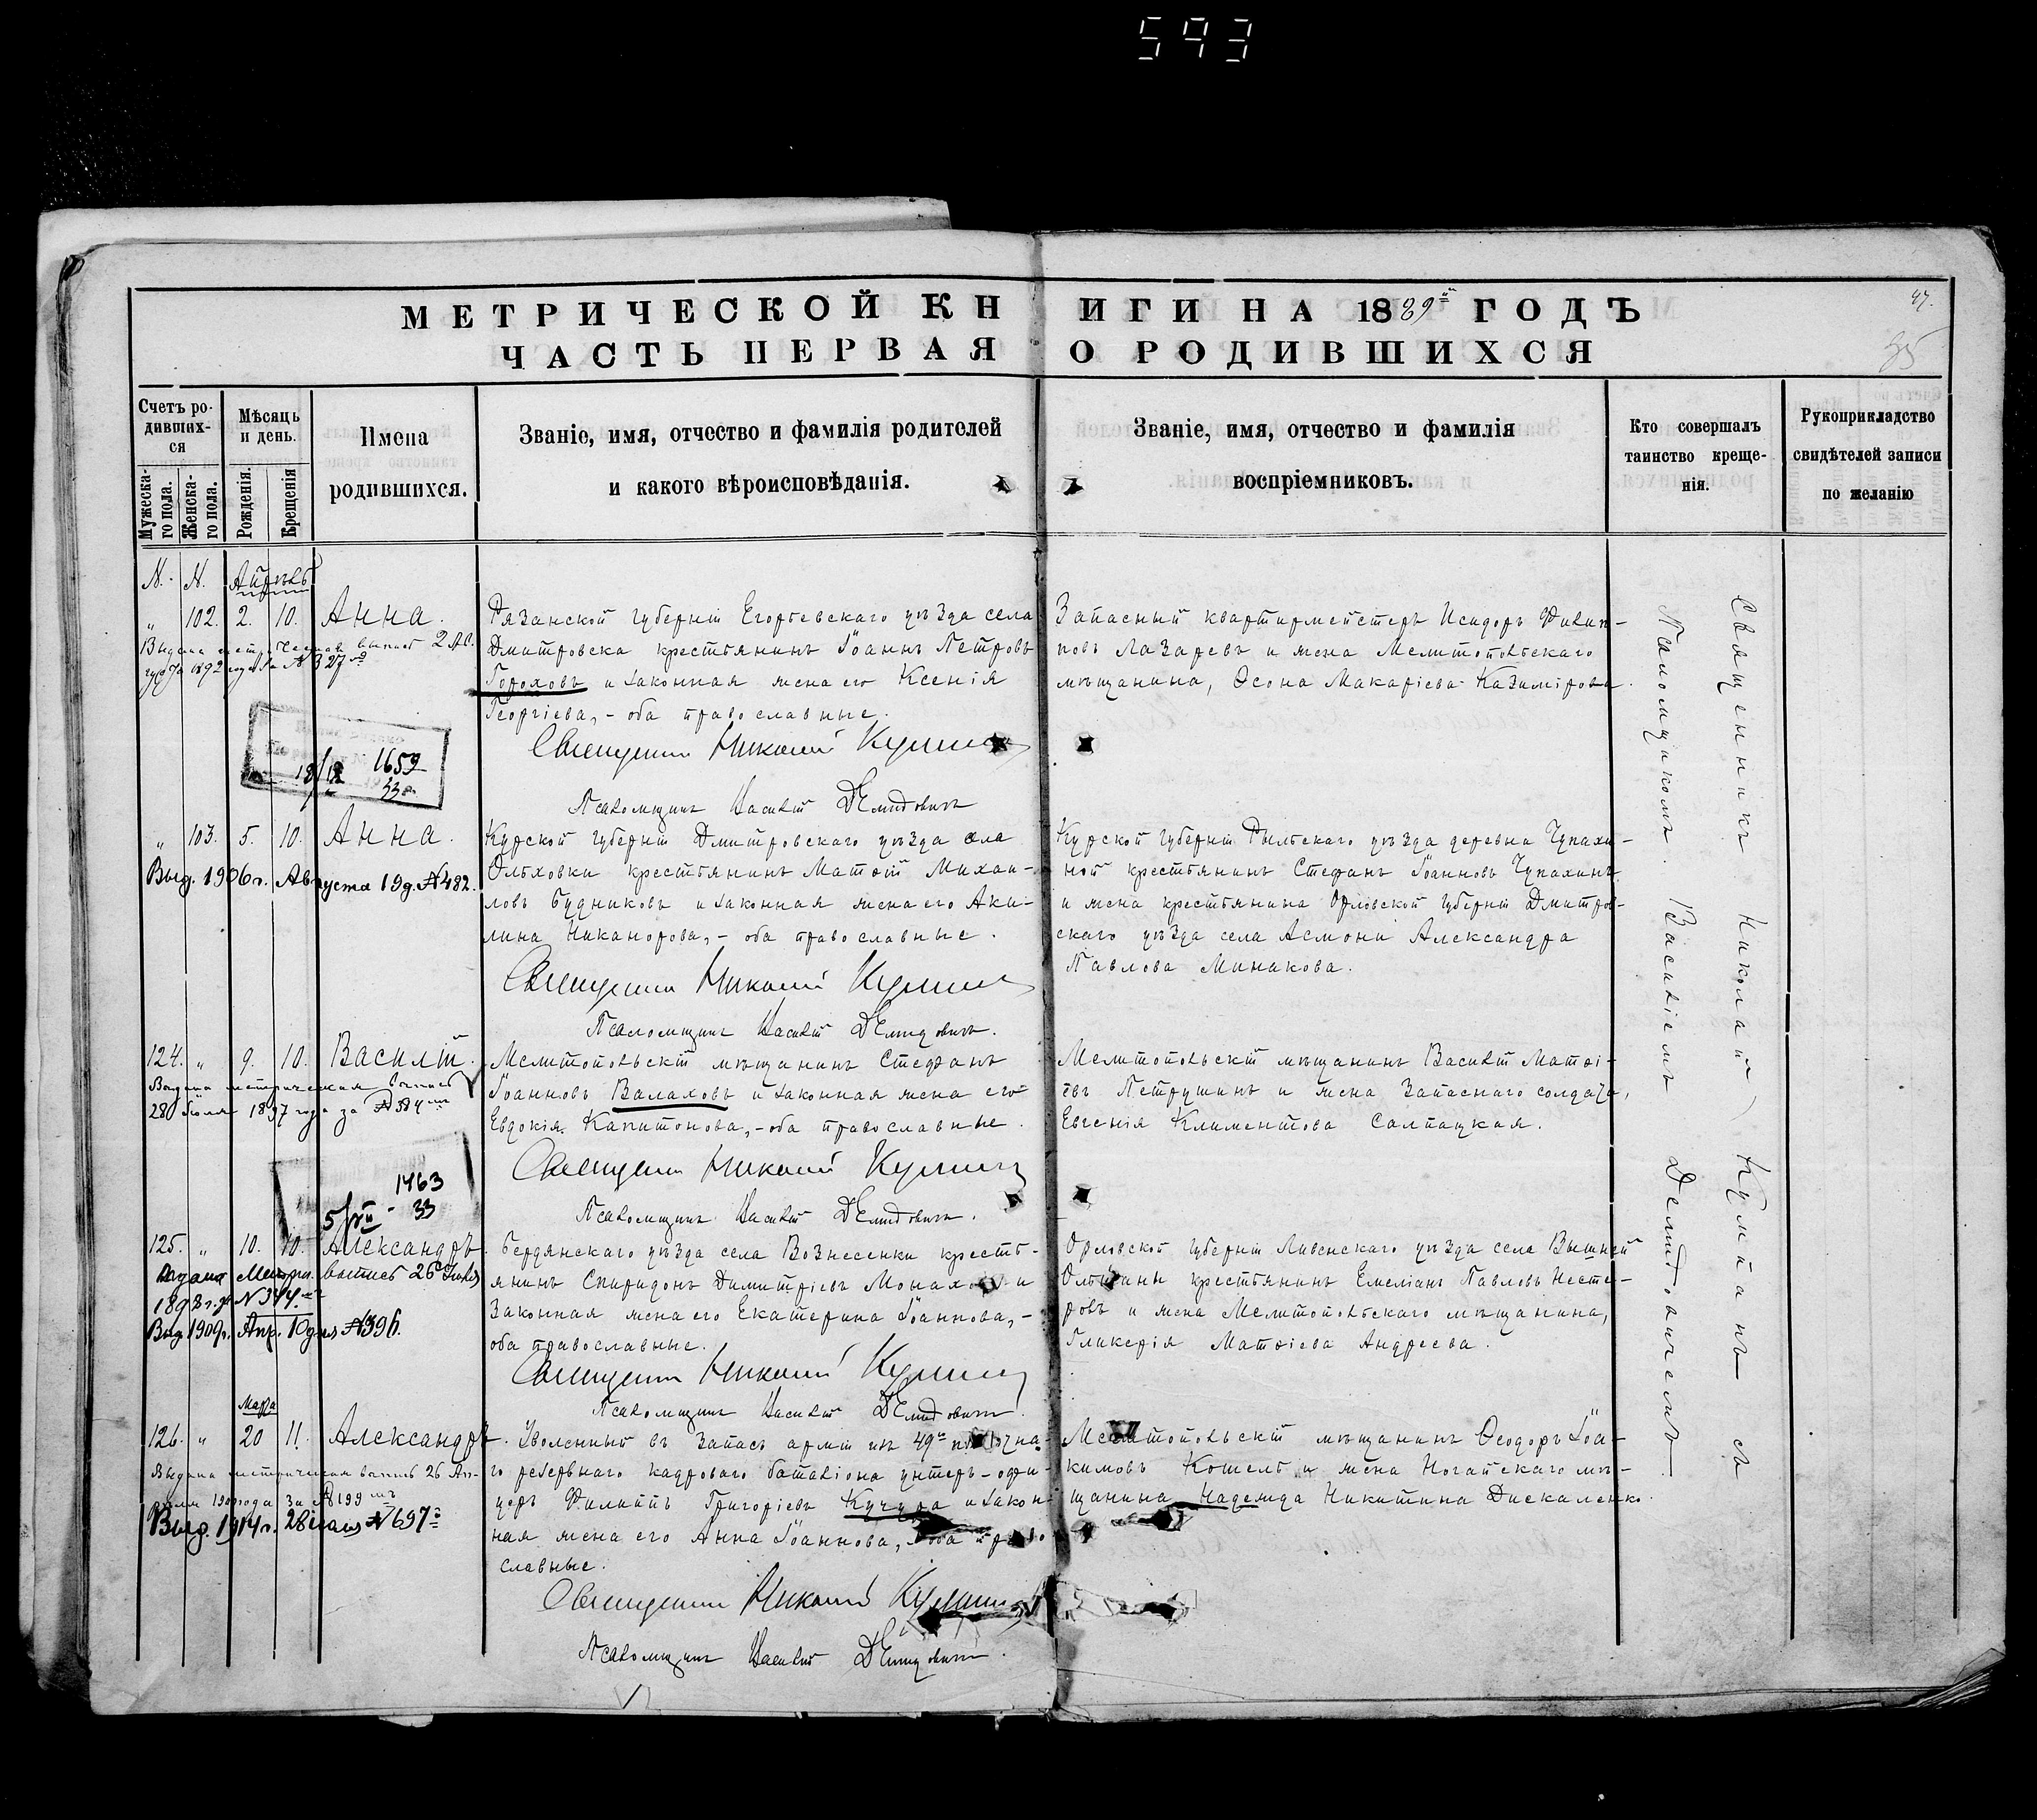 593
МЕТРИЧЕСКОЙ КНИГИ НА 1889й ГОДЪ
47.
ЧАСТЬ ПЕРВАЯ О РОДИВШИХСЯ
85
Счетъ родившихся
Мужескаго пола.
Женскаго пола.
Мѣсяцъ и день.
Рожденія.
Крещенія
Имена родившихся.
Званіе, имя, отчество и фамилія родителей
и какого вѣроисповѣданія.
Званіе, имя, отчество и фамилія
воспріемниковъ.
Кто совершалъ
таинство креще-
нія.
Рукоприкладство
свидѣтелей записи
по желанію
N. N. Апрѣль
„ 102. 2. 10. Анна.
Выдана метрическая выпись 2 Ав.
1892 года № 327
18/ 1659
33
Рязанской губерніи Егорьевскаго уѣзда села
Дмитровска крестьянинъ Іоаннъ Петровъ
Гороховъ и законная жена его Ксенія
Георгіева, - оба православные.
Священникъ Николай Кульманъ
Псаломщикъ Василій Демидовичъ
Запасный квартирмейстеръ Исидоръ Филип-
повъ Лазаревъ и жена Мелитопольскаго
мѣщанина, Ѳеона Макаріева Казимірова.
„ 103. 5. 10. Анна.
Выд. 1906 г. Августа 19 д. № 482.
Курской губерніи Дмитровскаго уѣзда села
Ольховки крестьянинъ Матѳій Михаи-
ловъ Будниковъ и законная жена его Аки-
лина Никанорова, - оба православные.
Священникъ Николай Кульманъ
Псаломщикъ Василій Демидовичъ.
Курской губерніи Рыльскаго уѣзда деревни Чупахи-
ной крестьянинъ Стефанъ Іоанновъ Чупахинъ
и жена крестьянина Орловской губерніи Дмитров-
скаго уѣзда села Асмони Александра
Павлова Минакова.
124. „ 9. 10. Василій.
Выдана метрическая выпись
28 Іюля 1897 года за № 384
1463
5/VII - 33
Мелитопольскій мѣщанинъ Стефанъ
Іоанновъ Валаховъ и законная жена его
Евдокія Капитонова, - оба православные.
Священникъ Николай Кульманъ
Псаломщикъ Василій Демидовичъ.
Мелитопольскій мѣщанинъ Василій Матѳі-
евъ Петрушинъ и жена запаснаго солдата,
Евгенія Климентова Салпацкая.
125. „ 10. 10. Александръ.
Выдана Метри. выпись 26
189 г. за № 344.
Выд. 1909 г. Апр. 10 дня № 396.
Бердянскаго уѣзда села Вознесенки кресть-
янинъ Спиридонъ Димитріевъ Монаховъ и
законная жена его Екатерина Іоаннова, -
оба православные.
Священникъ Николай Кульманъ
Псаломщикъ Василій Демидовичъ.
Орловской губерніи Ливенскаго уѣзда села Вышней
Ольшаны крестьянинъ Емеліанъ Павловъ Несте-
ровъ и жена Мелитопольскаго мѣщанина,
Гликерія Матѳіева Андреева.
Марта
126. „ 20 11. Александръ.
Выдана метрическая выпись 26 Ап-
реля года за № 199
Выд. 1914 г. 28 № 697
Уволенный въ запасъ арміи изъ 49го
го резервнаго кадроваго баталіона унтеръ-офи-
церъ Филиппъ Григоріевъ Кучура и закон-
ная жена его Анна Іоаннова, - оба право
славные.
Священникъ Николай Кульманъ
Псаломщикъ Василій Демидовичъ.
Мелитопольскій мѣщанинъ Ѳеодоръ Іоа-
кимовъ Кошель и жена Ногайскаго мѣ-
щанина Надежда Никитина Дискаленко.
Священникъ Николай Кульманъ съ
Псаломщикомъ Василіемъ Демидовичемъ